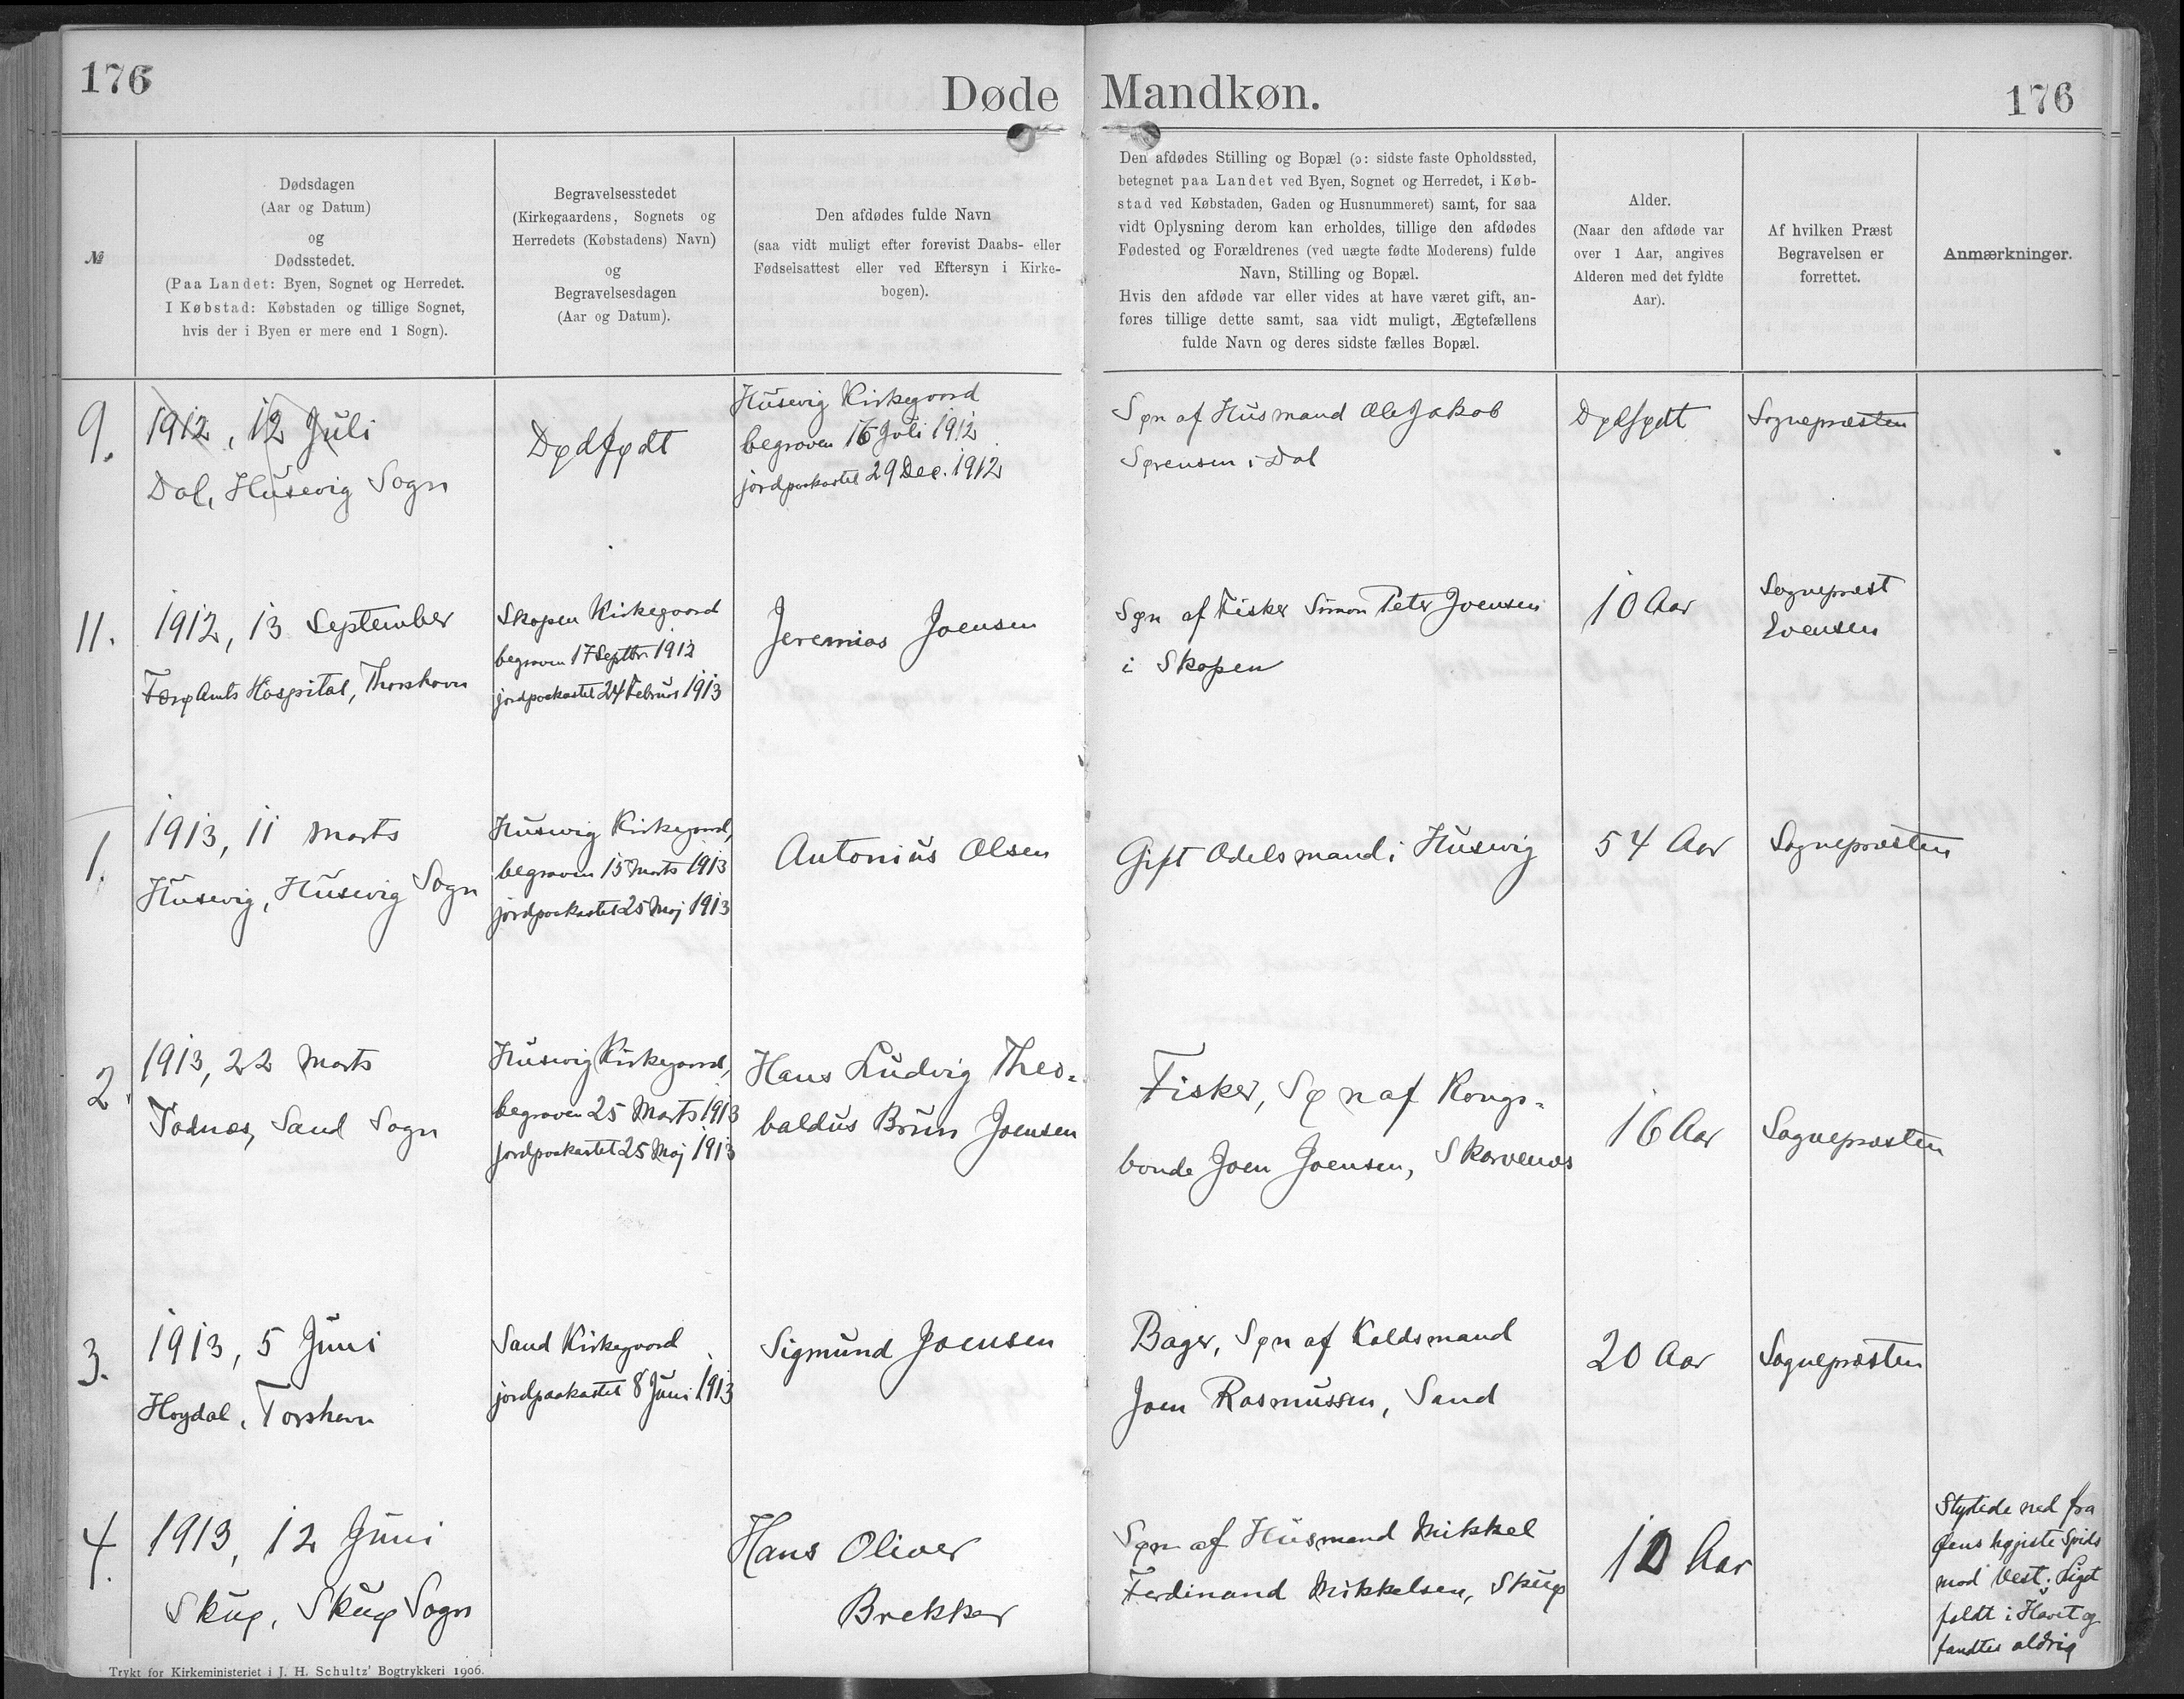 176
Døde Mandkøn.
176
№
Dødsdagen
(Aar og Datum)
og
Dødsstedet.
(Paa Landet: Byen, Sognet og Herredet.
I Købstad: Købstaden og tillige Sognet,
hvis der i Byen er mere end 1 Sogn).
Begravelsesstedet
(Kirkegaardens, Sognets og
Herredets (Købstadens) Navn)
og
Begravelsesdagen
(Aar og Datum).
Den afdødes fulde Navn
(saa vidt muligt efter forevist Daabs- eller
Fødselsattest eller ved Eftersyn i Kirke-
bogen).
Den afdødes Stilling og Bopæl (ɔ: sidste faste Opholdssted,
betegnet paa Landet ved Byen, Sognet og Herredet, i Køb-
stad ved Købstaden, Gaden og Husnummeret) samt, for saa
vidt Oplysning derom kan erholdes, tillige den afdødes
Fødested og Forældrenes (ved uægte fødte Moderens) fulde
Navn, Stilling og Bopæl.
Hvis den afdøde var eller vides at have været gift, an-
føres tillige dette samt, saa vidt muligt, Ægtefællens
fulde Navn og deres sidste fælles Bopæl.
Alder.
(Naar den afdøde var
over 1 Aar, angives
Alderen med det fyldte
Aar).
Af hvilken Præst
Begravelsen er
forrettet.
Anmærkninger.
9.
1912, 12 Juli
Dal, Husevig Sogn
Dødfødt
Husevig Kirkegaard
begraven 16 Juli 1912
jordpaakastet 29 Dec. 1912
Søn af Husmand Ole Jakob
Sørensen i Dal
Dødfødt
Sognepræsten
11.
1912, 13 September
Færø Amts Hospital, Thorshavn
Skopen Kirkegaard
begraven 17 Septbr 1912
jordpaakastet 24 Februar 1913
Jeremias Joensen
Søn af Fisker Simon Peter Joensen
i Skopen
10 Aar
Sognepræst
Evensen
1.
1913, 11 Marts
Husevig, Husevig Sogn
Husevig Kirkegaard,
begraven 15 Marts 1913
jordpaakastet 25 Maj 1913
Antonius Olsen
Gift Odelsmand i Husevig
54 Aar
Sognepræsten
2.
1913, 22 Marts
Todnæs, Sand Sogn
Husevig Kirkegaard,
begraven 25 Marts 1913
jordpaakastet 25 Maj 1913
Hans Ludvig Theo-
baldus Brun Joensen
Fisker, Søn af Kongs-
bonde Joen Joensen, Skarvenæs
16 Aar
Sognepræsten
3.
1913, 5 Juni
Hoydal, Torshavn
Sand Kirkegaard
jordpaakastet 8 Juni 1913
Sigmund Joensen
Bager, Søn af Kaldsmand
Joen Rasmussen, Sand
20 Aar
Sognepræsten
4.
1913, 12 Juni
Skuø, Skuø Sogn
Hans Oliver
Brekker
Søn af Husmand Mikkel
Ferdinand Mikkelsen, Skuø
Aar
Styrtede ned fra
Øens højeste Spids
mod Vest. Liget
faldt i Havet og
fandtes aldrig
Trykt for Kirkeministeriet i J. H. Schultz' Bogtrykkeri 1906.